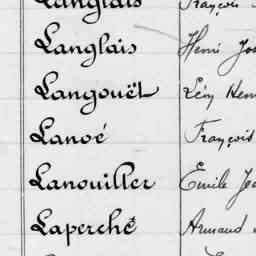 Langlais François
Langlais Henri
Langouët Léon Henri
Lanoé François
Lanouiller Emile
Laperché Armand